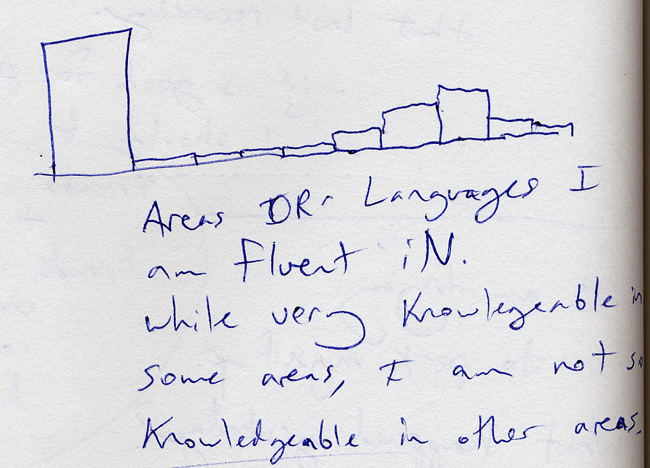 Areas OR Languages I
am Fluent iN.
while very Knowlegeable in
some areas, I am not so
Knowledgeable in other areas.